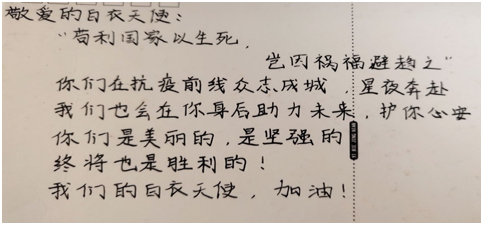 敬爱的白衣天使：
“苟利国家以生死，
岂因祸福避趋之”
你们在抗疫前线众志成城，星夜奔赴
我们也会在你身后助力未来，护你心安
你们是美丽的，是坚强的
终将也是胜利的！
我们的白衣天使，加油！